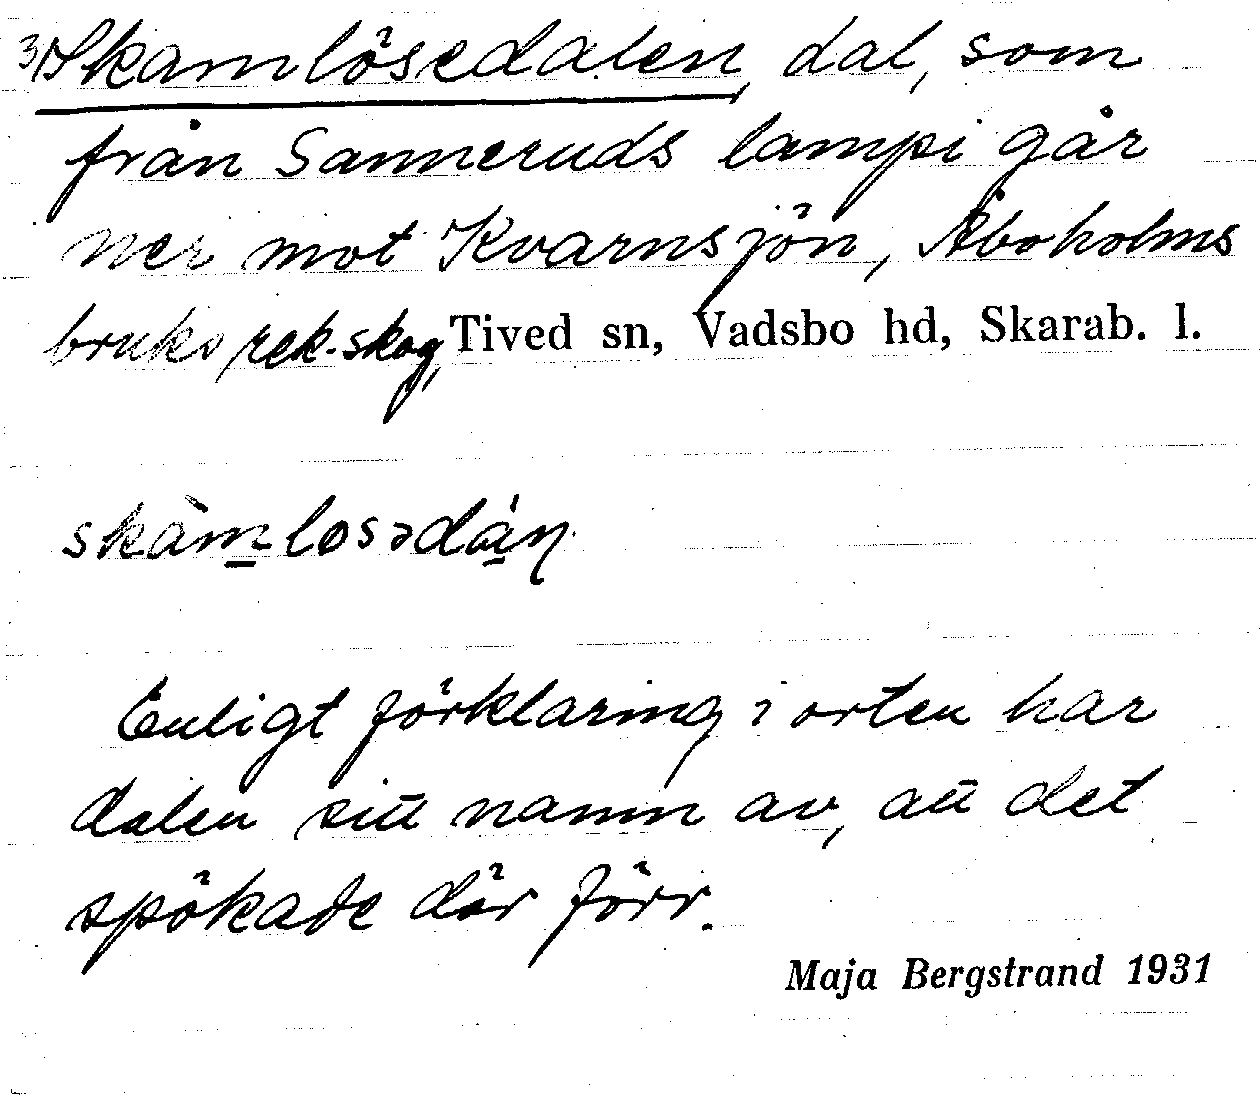 3) Skamlösedalen, dal, som
från Sanneruds lampi går
ner mot Kvarnsjön, Åboholms
bruks rek.skog, Tived sn, Vadsbo hd, Skarab. l.
skàmlosədán
Enligt förklaring i orten har
dalen sitt namn av, att det
spökade där förr.
Maja Bergstrand 1931